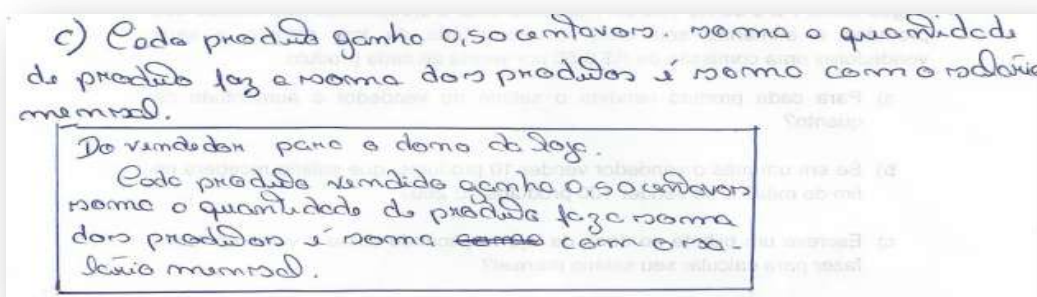 c) Cada produto ganha 0,50 centavos. soma a quantidade
de produto faz a soma dos produtos é soma com o salário
mensal.
Do vendedor para o dono da loja.
Cada produto vendido ganha 0,50 centavos
soma a quantidade de produto faz a soma
dos produtos é soma como com o sa-
lário mensal.